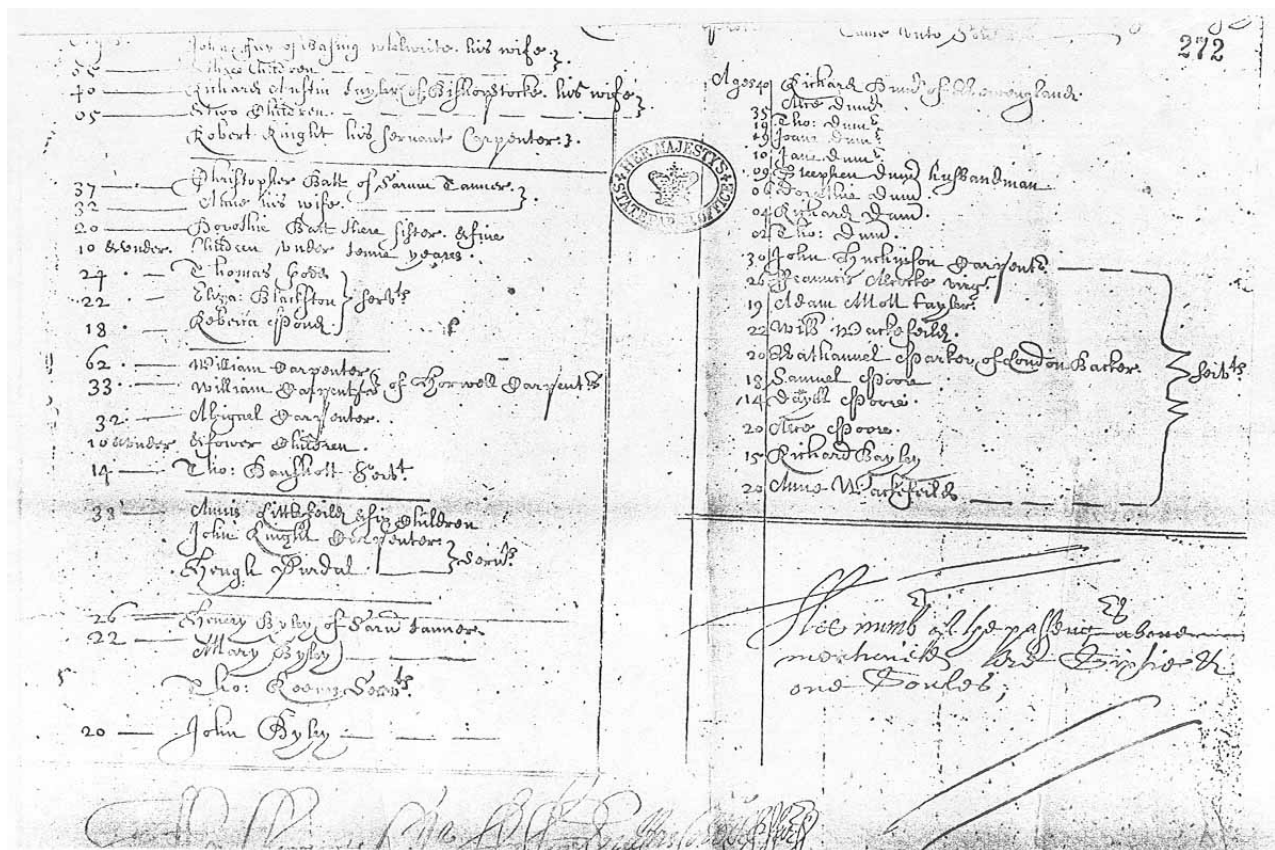 John Fry of Basing wheelwrite his wife
& three Children
40 Richard Austin Tayler of Bishopstocke his wife
05 & two Children
Robert Knight his servant Carpenter
37 Christopher Batt of Sarum Tanner.
32 Anne his wife.
20 Dorothie Batt there sister & five
10 & vnder. Children vnder tenne yeares.
24 Thomas Good
22 Eliza: Blackston servts
18 Rebecca Pond
62 William Carpenter
33 William Carpenter of Horwell Carpenter
32 Abigael Carpenter.
10 & vnder & fower Children.
14 Tho: Banshott Servt
38 Annis Littlefeild & six Children
John Knight Carpenter
Heugh Durdal servts
26 Henery Byley of Sarū tanner
22 Mary Byley
Tho: Reeves Servt
20 John Byley
272
Ages 40 Richard Dumr of Newengland.
35 Alce Dumr
19 Tho: Dumr
19 Joane Dumr
10 Jane Dumr
09 Steephen Dumr husbandman
06 Dorothie Dumr.
04 Richard Dumr.
02 Tho: Dumr.
30 John Huchinson Carpentr
26 Francis Alcocke virg.
19 Adam Mott tayler
22 Will Wackefeild.
20 Nathanuel Parker, of London Backer servts
18 Samuel Poore
14 Dayell Poore.
20 Alce Poore.
15 Richard Bayley
20 Anne Wackefeild
HER MAJESTYS STATE PAPER OFFICE
The numb of the passengrs above
mencioned are Sixtie &
one Soules;